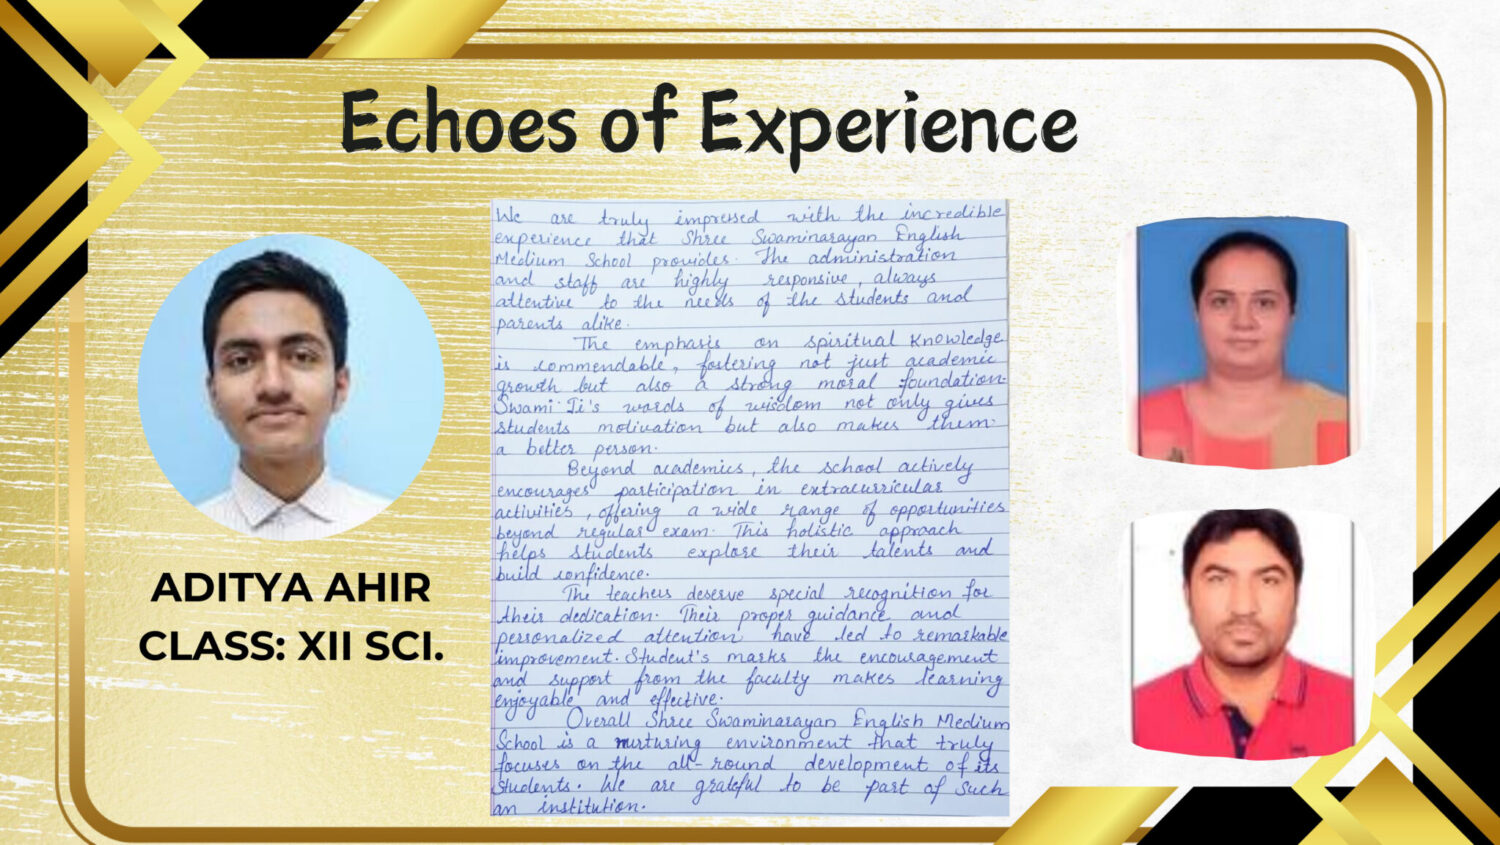 Echoes of Experience
We are truly impressed with the incredible
experience that Shree Swaminarayan English
Medium School provides. The administration
and staff are highly responsive, always
attentive to the needs of the students and
parents alike.
The emphasis on spiritual Knowledge
is commendable, fostering not just academic
growth but also a strong moral foundation.
Swami Ji's words of wisdom not only gives
students motivation but also makes them
a better person.
Beyond academics, the school actively
encourages participation in extracurricular
activities, offering a wide range of opportunities
beyond regular exam. This holistic approach
helps students explore their talents and
build confidence.
The teachers deserve special recognition for
their dedication. Their proper guidance and
personalized attention have led to remarkable
improvement. Student's marks the encouragement
and support from the faculty makes learning
enjoyable and effective.
Overall Shree Swaminarayan English Medium
School is a nurturing environment that truly
focuses on the all-round development of its
students. We are grateful to be part of such
an institution.
ADITYA AHIR
CLASS: XII SCI.